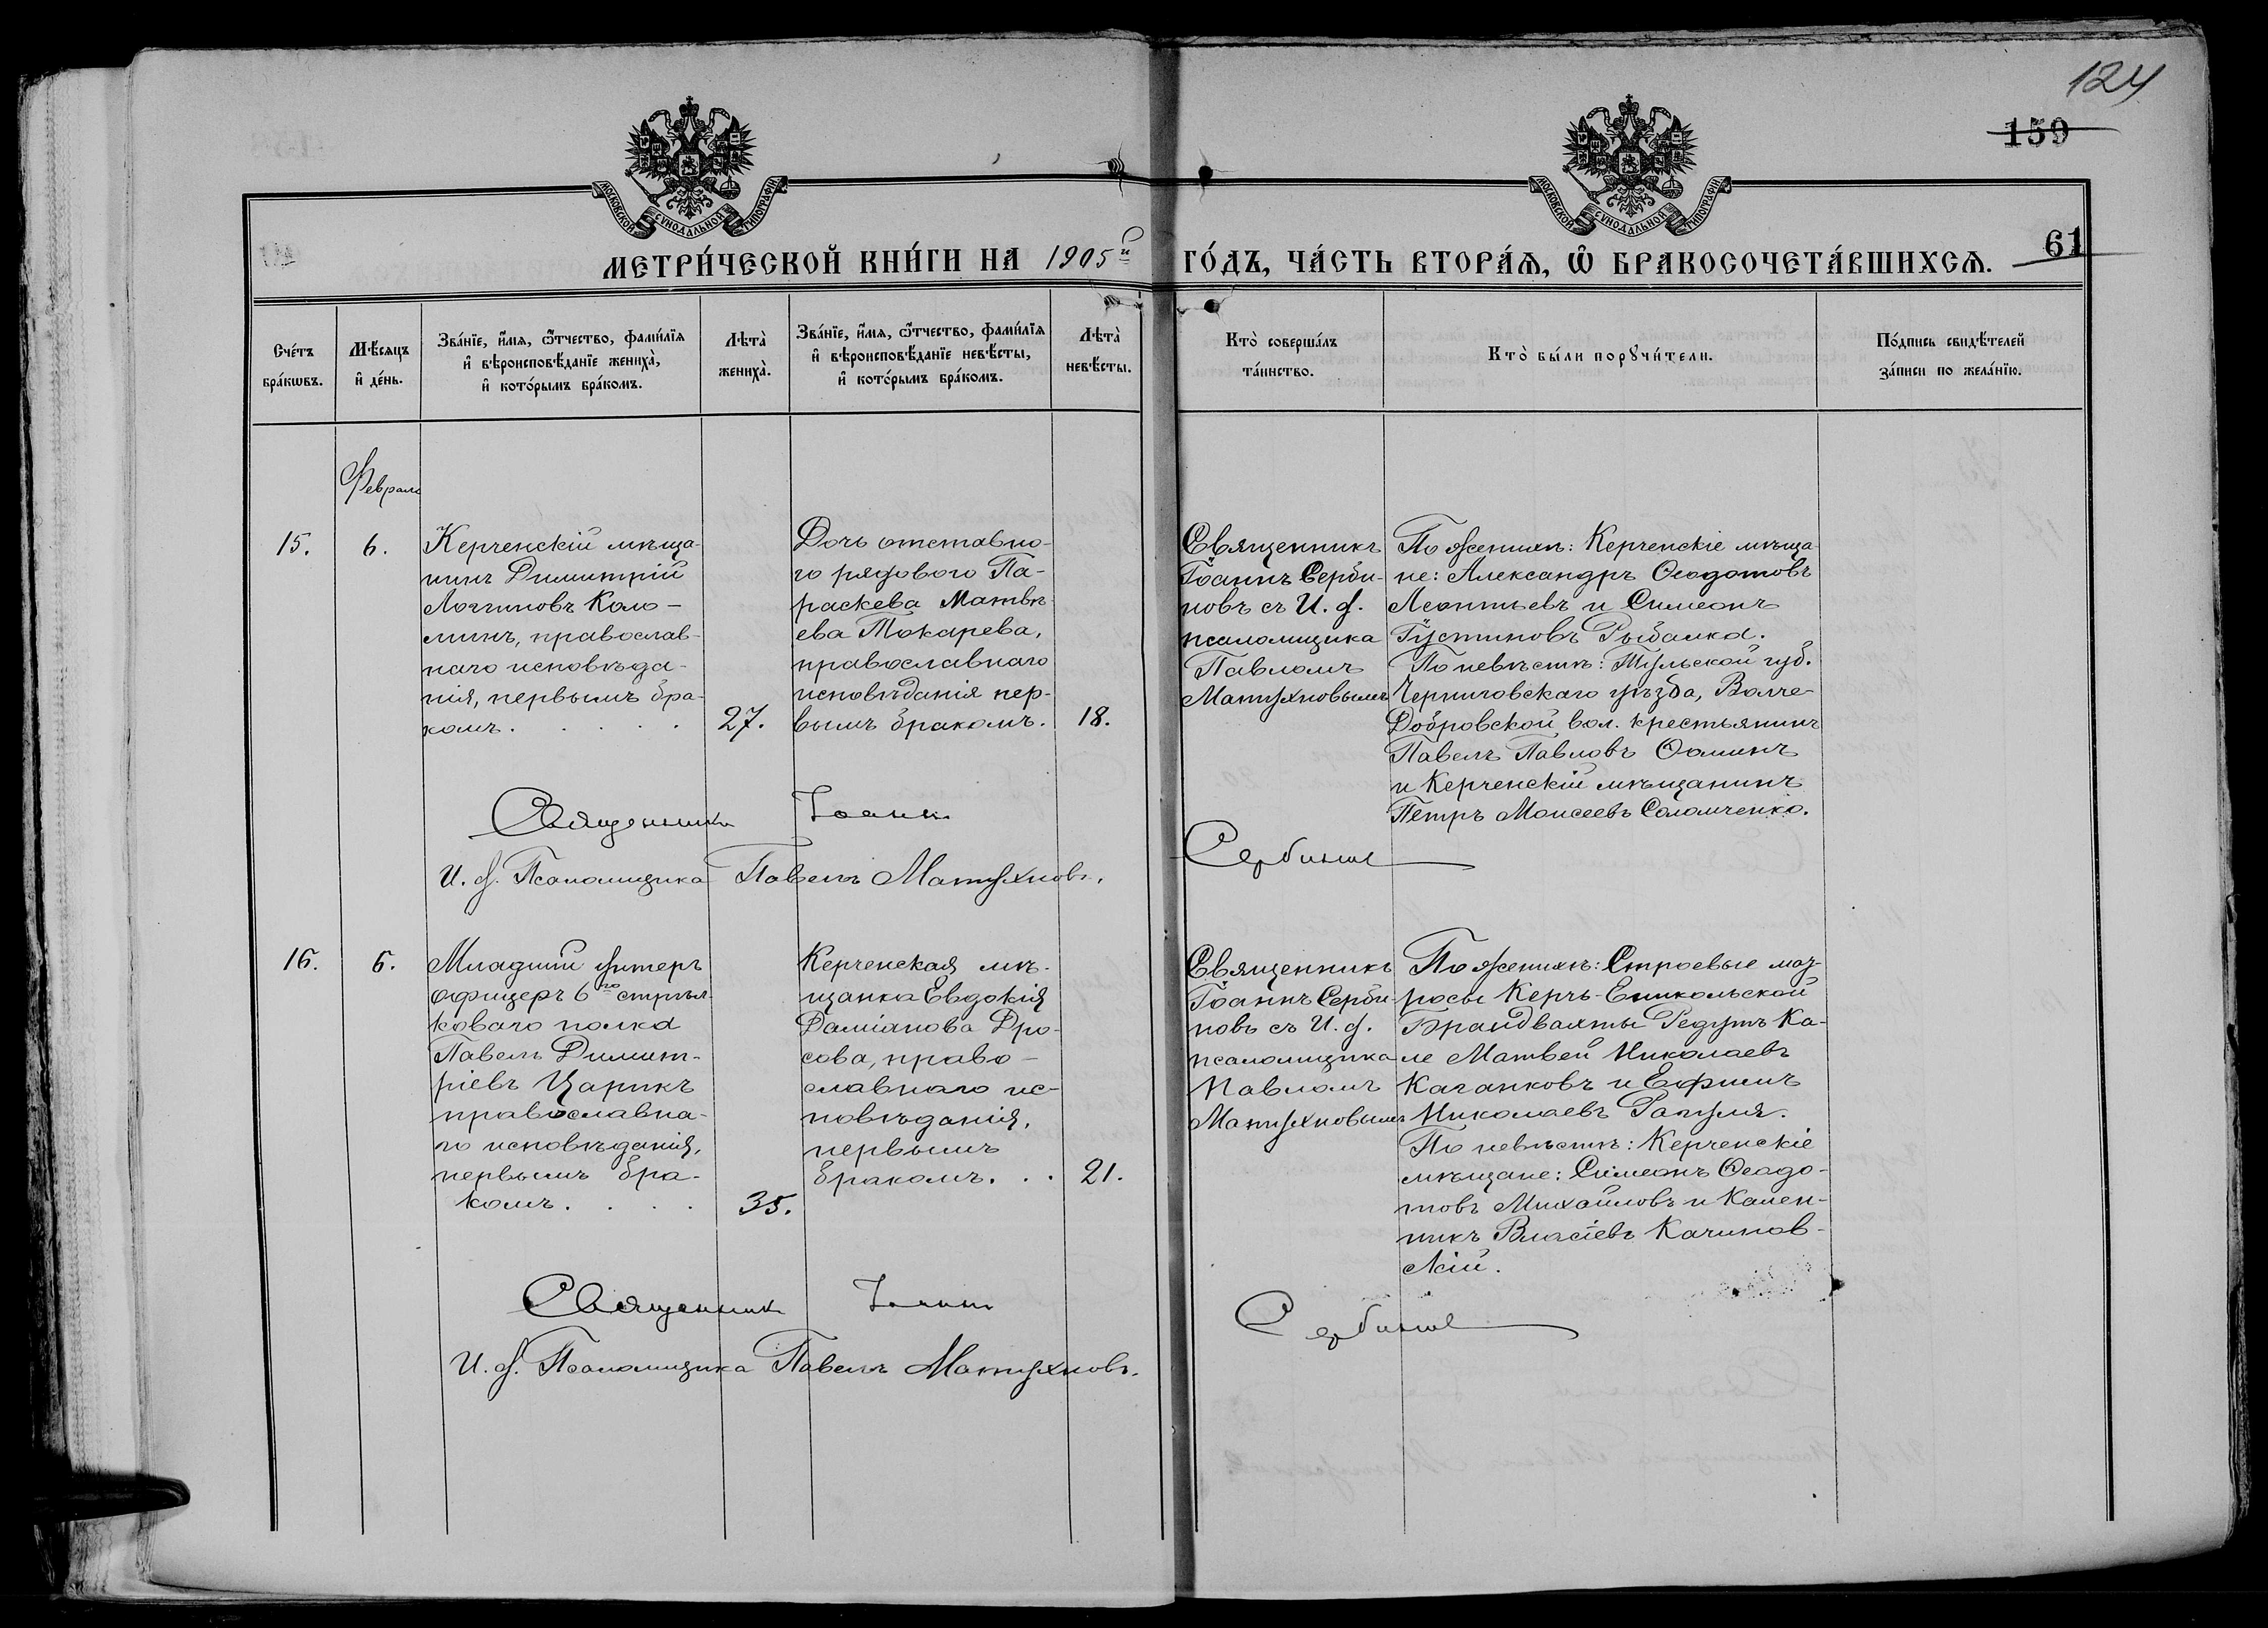 124
159
61
МОСКОВСКОЙ СѴНОДАЛЬНОЙ ТИПОГРАФІИ
МОСКОВСКОЙ СѴНОДАЛЬНОЙ ТИПОГРАФІИ
МЕТРИ́ЧЕСКОЙ КНИ́ГИ НА 1905й ГО́ДЪ, ЧА́СТЬ ВТОРА́Ѧ, Ѽ БРАКОСОЧЕТА́ВШИХСѦ.
Сче́тъ
бра́кωвъ.
Мѣ́сяцъ
и҆ де́нь.
Зва́нїе, и҆́мѧ, ѻ҆́тчество, фами́лїѧ
и҆ вѣроисповѣ́данїе жениха̀,
и҆ кото́рымъ бра́комъ.
Лѣта̀
жениха̀.
Зва́нїе, и҆́мѧ, ѻ҆́тчество, фами́лїѧ
и҆ вѣроисповѣ́данїе невѣ́сты,
и҆ кото́рымъ бра́комъ.
Лѣта̀
невѣ́сты.
Кто̀ соверша́лъ
та́инство.
Кто̀ бы́ли порꙋчи́тели.
По́дпись свидѣ́телей
за́писи по жела́нїю.
Февраль
15.
6.
Керченскій мѣща-
нинъ Димитрій
Логгиновъ Коло-
минъ, православ-
наго исповѣда-
нія, первымъ бра-
комъ. . . . .
27.
Дочь отставно-
го рядового Па-
раскева Матвѣ-
ева Токарева,
православнаго
исповѣданія пер-
вымъ бракомъ.
18.
Священникъ
Іоаннъ Серби-
новъ съ И. д.
псаломщика
Павломъ
Матухновымъ
По женихѣ: Керченскіе мѣща-
не: Александръ Ѳеодотовъ
Леонтьевъ и Симеонъ
Іустиновъ Рыбалка.
По невѣстѣ: Тульской губ.
Черниговскаго уѣзда, Волче-
Добровской вол. крестьянинъ
Павелъ Павловъ Ѳоминъ
и Керченскій мѣщанинъ
Петръ Моисеевъ Соломченко.
Священникъ Іоаннъ Сербиновъ
И. д. Псаломщика Павелъ Матухновъ.
16.
6.
Младшій унтеръ
офицеръ 6го стрѣл-
коваго полка
Павелъ Димит-
ріевъ Царикъ
православна-
го исповѣданія,
первымъ бра-
комъ. . . .
35.
Керченская мѣ-
щанка Евдокія
Даміанова Дро-
сова, право-
славнаго ис-
повѣданія,
первымъ
бракомъ. . .
21.
Священникъ
Іоаннъ Серби-
новъ съ И. д.
псаломщика
Павломъ
Матухновымъ
По женихѣ: Строевые мат-
росы Керчь-Еникольской
Брандвахты Редутъ Ка-
ле Матвей Николаевъ
Каганковъ и Ефимъ
Николаевъ Рагуля.
По невѣстѣ: Керченскіе
мѣщане: Симеонъ Ѳеодо-
товъ Михайловъ и Кален-
никъ Власіевъ Качинов-
скій.
Священникъ Іоаннъ Сербиновъ
И. д. Псаломщика Павелъ Матухновъ.